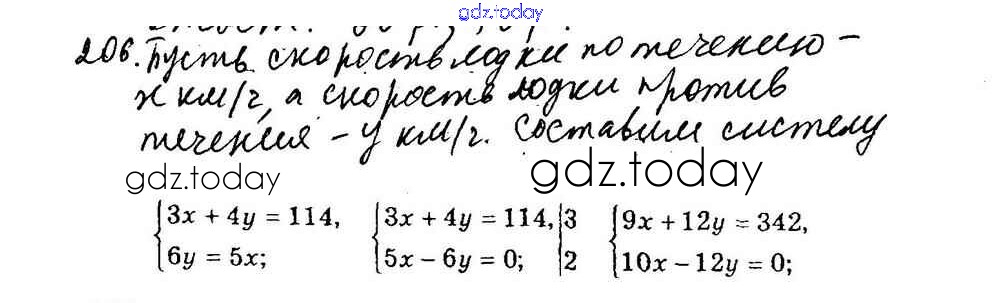 gdz.today
206. Пусть скорость лодки по течению –
х км/ч, а скорость лодки против
течения – у км/ч. Составим систему
gdz.today gdz.today
{3x + 4y = 114, {3x + 4y = 114,|3 {9x + 12y = 342,
{6y = 5x; {5x − 6y = 0; |2 {10x − 12y = 0;